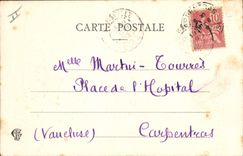 CARTE POSTALE
Melle Martin-Tourrès
Place de l'Hopital
(Vaucluse) Carpentras